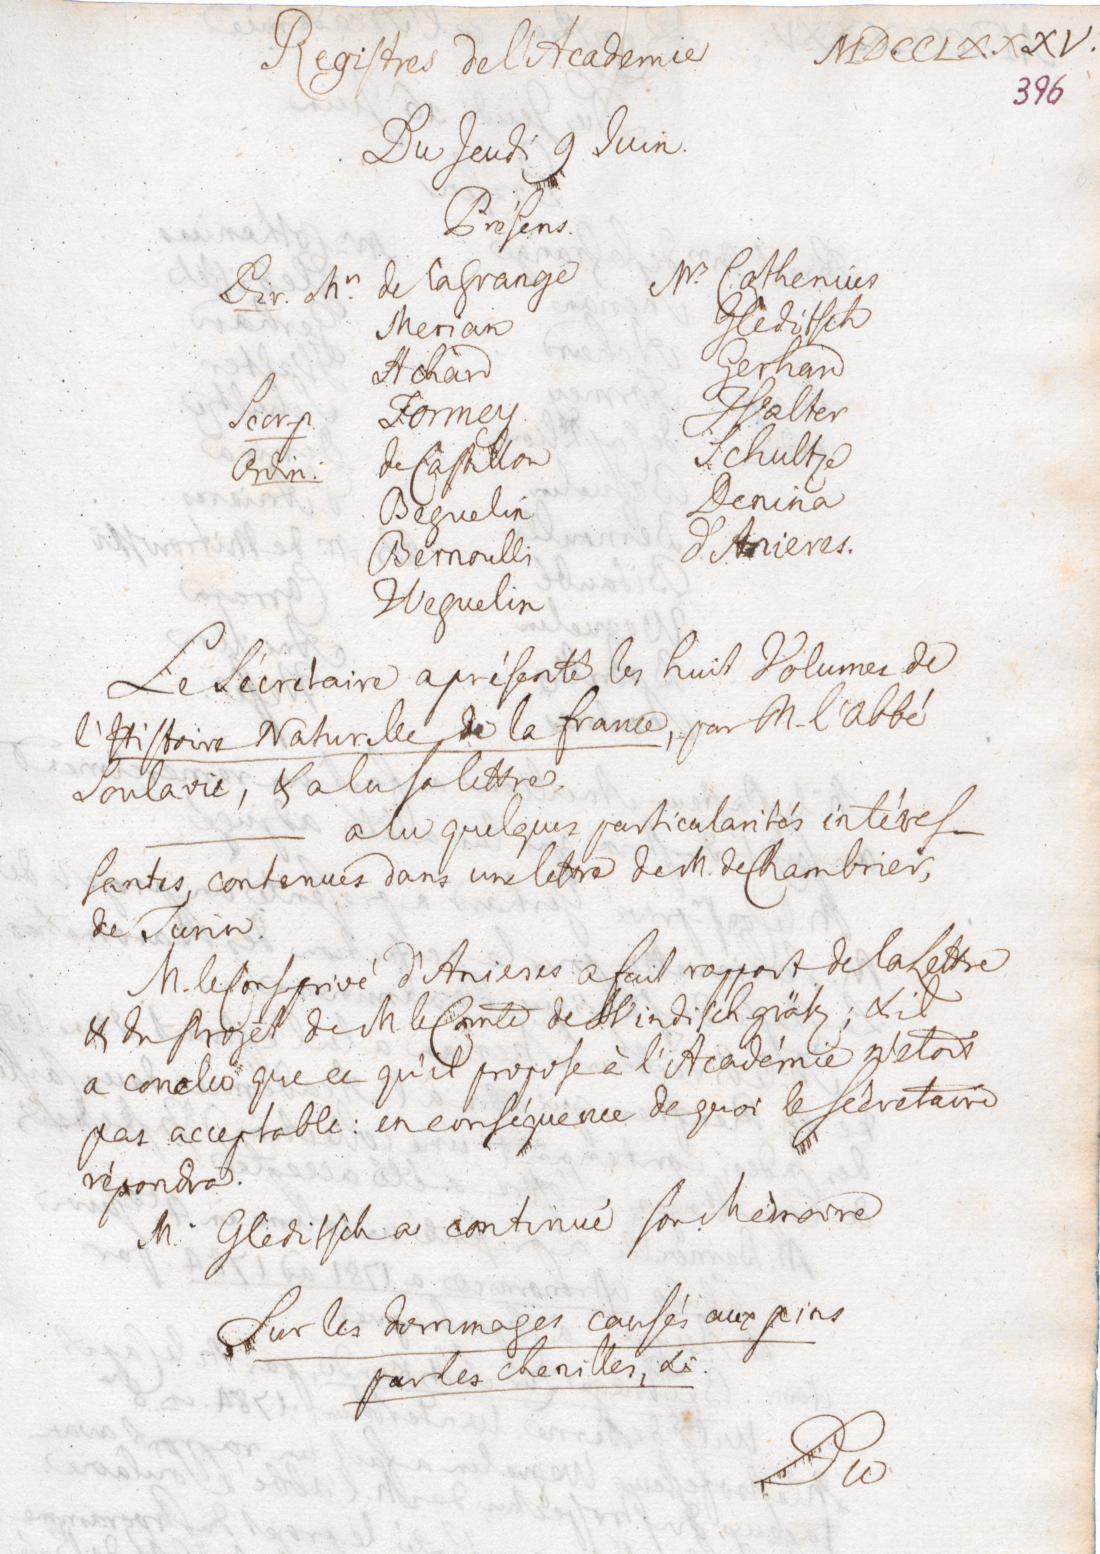 Registres de l'Academie MDCCLXXXV.
396
Du Jeudi 9 Juin.
Présens.
Dir. Mrs. de la Grange Mrs Cothenius
Merian Gleditsch
Achard Gerhard
Secr. p. Formey Walter
Ordin: de Castillon Schultze
Beguelin Denina
Bernoulli d'Anieres.
Weguelin
Le Sécretaire a présenté les huit Volumes de
l'Histoire Naturelle de la france, par M. l'Abbé
Soulavie, & a lu sa lettre.
——— a lu quelques particularités intéres-
santes, contenues dans une lettre de M. de Chambrier,
de Turin.
M. le Cons. privé d'Anieres a fait rapport de la Lettre
& du Projet de M. le Comte de Windischgrätz; & il
a conclu que ce qu'il propose à l'Académie n'etoit
pas acceptable: en conséquence de quoi le sécretaire
répondra.
M. Gleditsch a continué son Mémoire
Sur les dommages causés aux pins
par les chenilles, &c.
Du